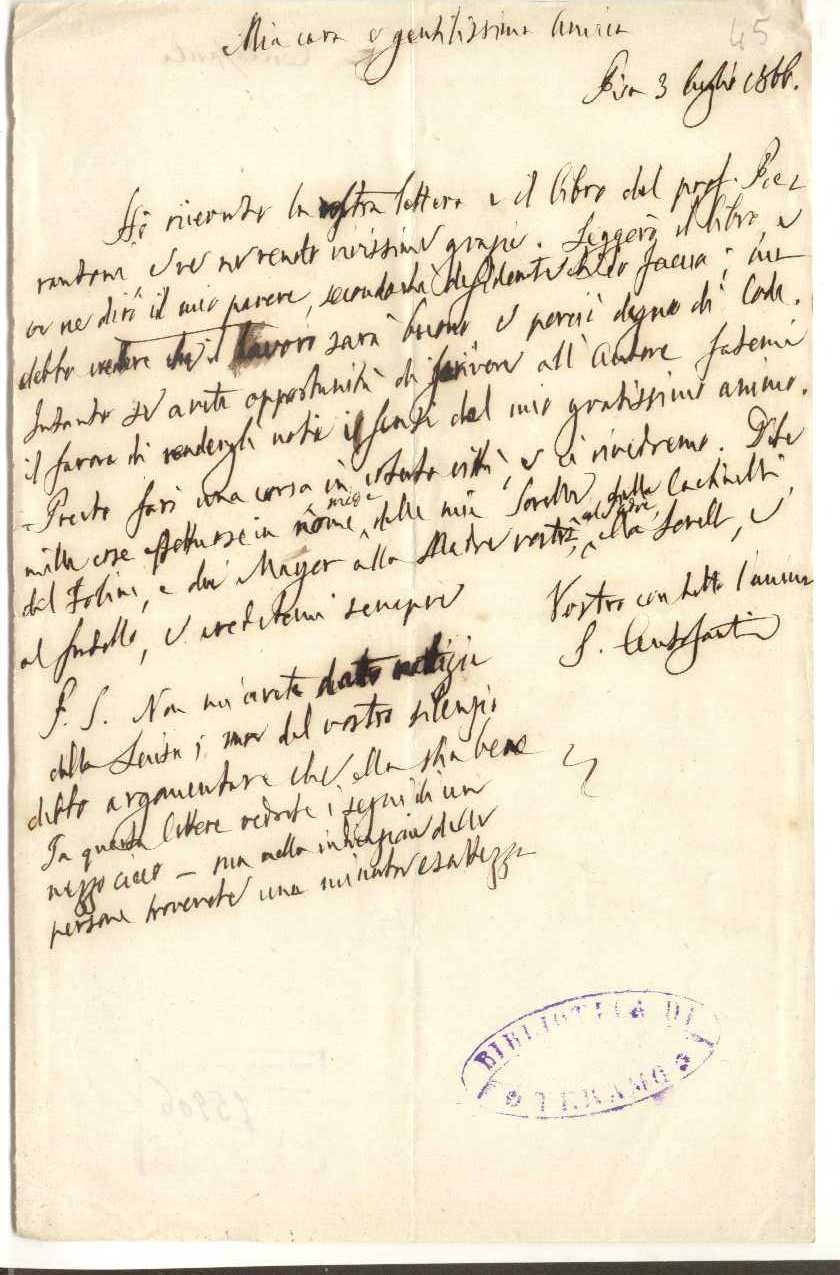 45
Mia cara e gentilissima Amica
Pisa 3 luglio 1866.
Ho ricevuto la vostra lettera e il libro del prof. Pie-
rantoni e ve ne rendo vivissime grazie. Leggerò il libro, e
ve ne dirò il mio parere, secondo ch'è desiderate ch'io faccia; in-
debbo credere che il lavoro sarà buono e perciò degno di lode.
Intanto se avete opportunità di scrivere all'Autore fatemi
il favore di rendergli noti i sensi del mio gratissimo animo.
Presto farò una corsa in città, e ci rivedremo. Dite
mille cose affettuose in nome mio e della mia Sorella, della Cachinelli,
del Tolini, e dei Mayer alla Madre vostra, al padre, alla Sorella, e
al fratello, e credetemi sempre
Vostro con tutto l'animo
S. Centofanti
P. S. Non m'avete dato notizie
della Luisa; ma dal vostro silenzio
debbo argomentare che ella stia bene
In questa lettera vedrete i segni di un
mezzo cieco — ma nella intenzione delle
persone troverete una minuta esattezza
BIBLIOTECA DI
TERAMO